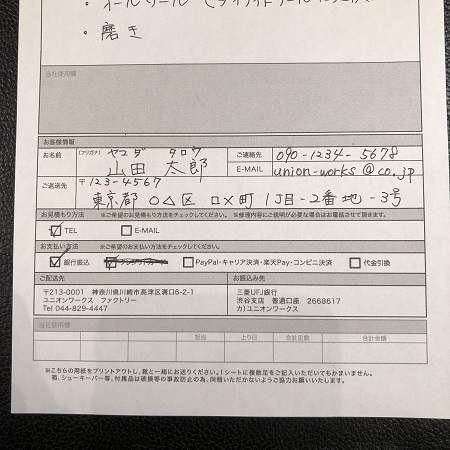 ・オールソール(ダイナイトソールに交換)
・磨き
当社使用欄
お客様情報
お名前 (フリガナ) ヤマダ タロウ ご連絡先 090-1234-5678
山田 太郎 E-MAIL union-works@co.jp
ご返送先 〒123-4567
東京都 〇△区 ロ×町 1丁目-2番地-3号
お見積もり方法 ※ご希望のお見積もり方法をチェックしてください。 ※修理内容にご説明が必要な場合はお電話させて頂きます。
TEL E-MAIL
お支払い方法 ※ご希望のお支払い方法をチェックしてください。
銀行振込 クレジットカード PayPal・キャリア決済・楽天Pay・コンビニ決済 代金引換
ご配送先 お振込み先
〒213-0001 神奈川県川崎市高津区溝口6-2-1 三菱UFJ銀行
ユニオンワークス ファクトリー 渋谷支店 普通口座 2668617
Tel 044-829-4447 カ)ユニオンワークス
当社使用欄
担当 上り日 合計足数 合計金額
※こちらの用紙をプリントアウトし、靴と一緒にお送りください。1シートに複数足をご記入いただいてもかまいません。
箱、シューキーパー等、付属品は破損等の事故防止の為、同梱いただかないようご協力お願いいたします。